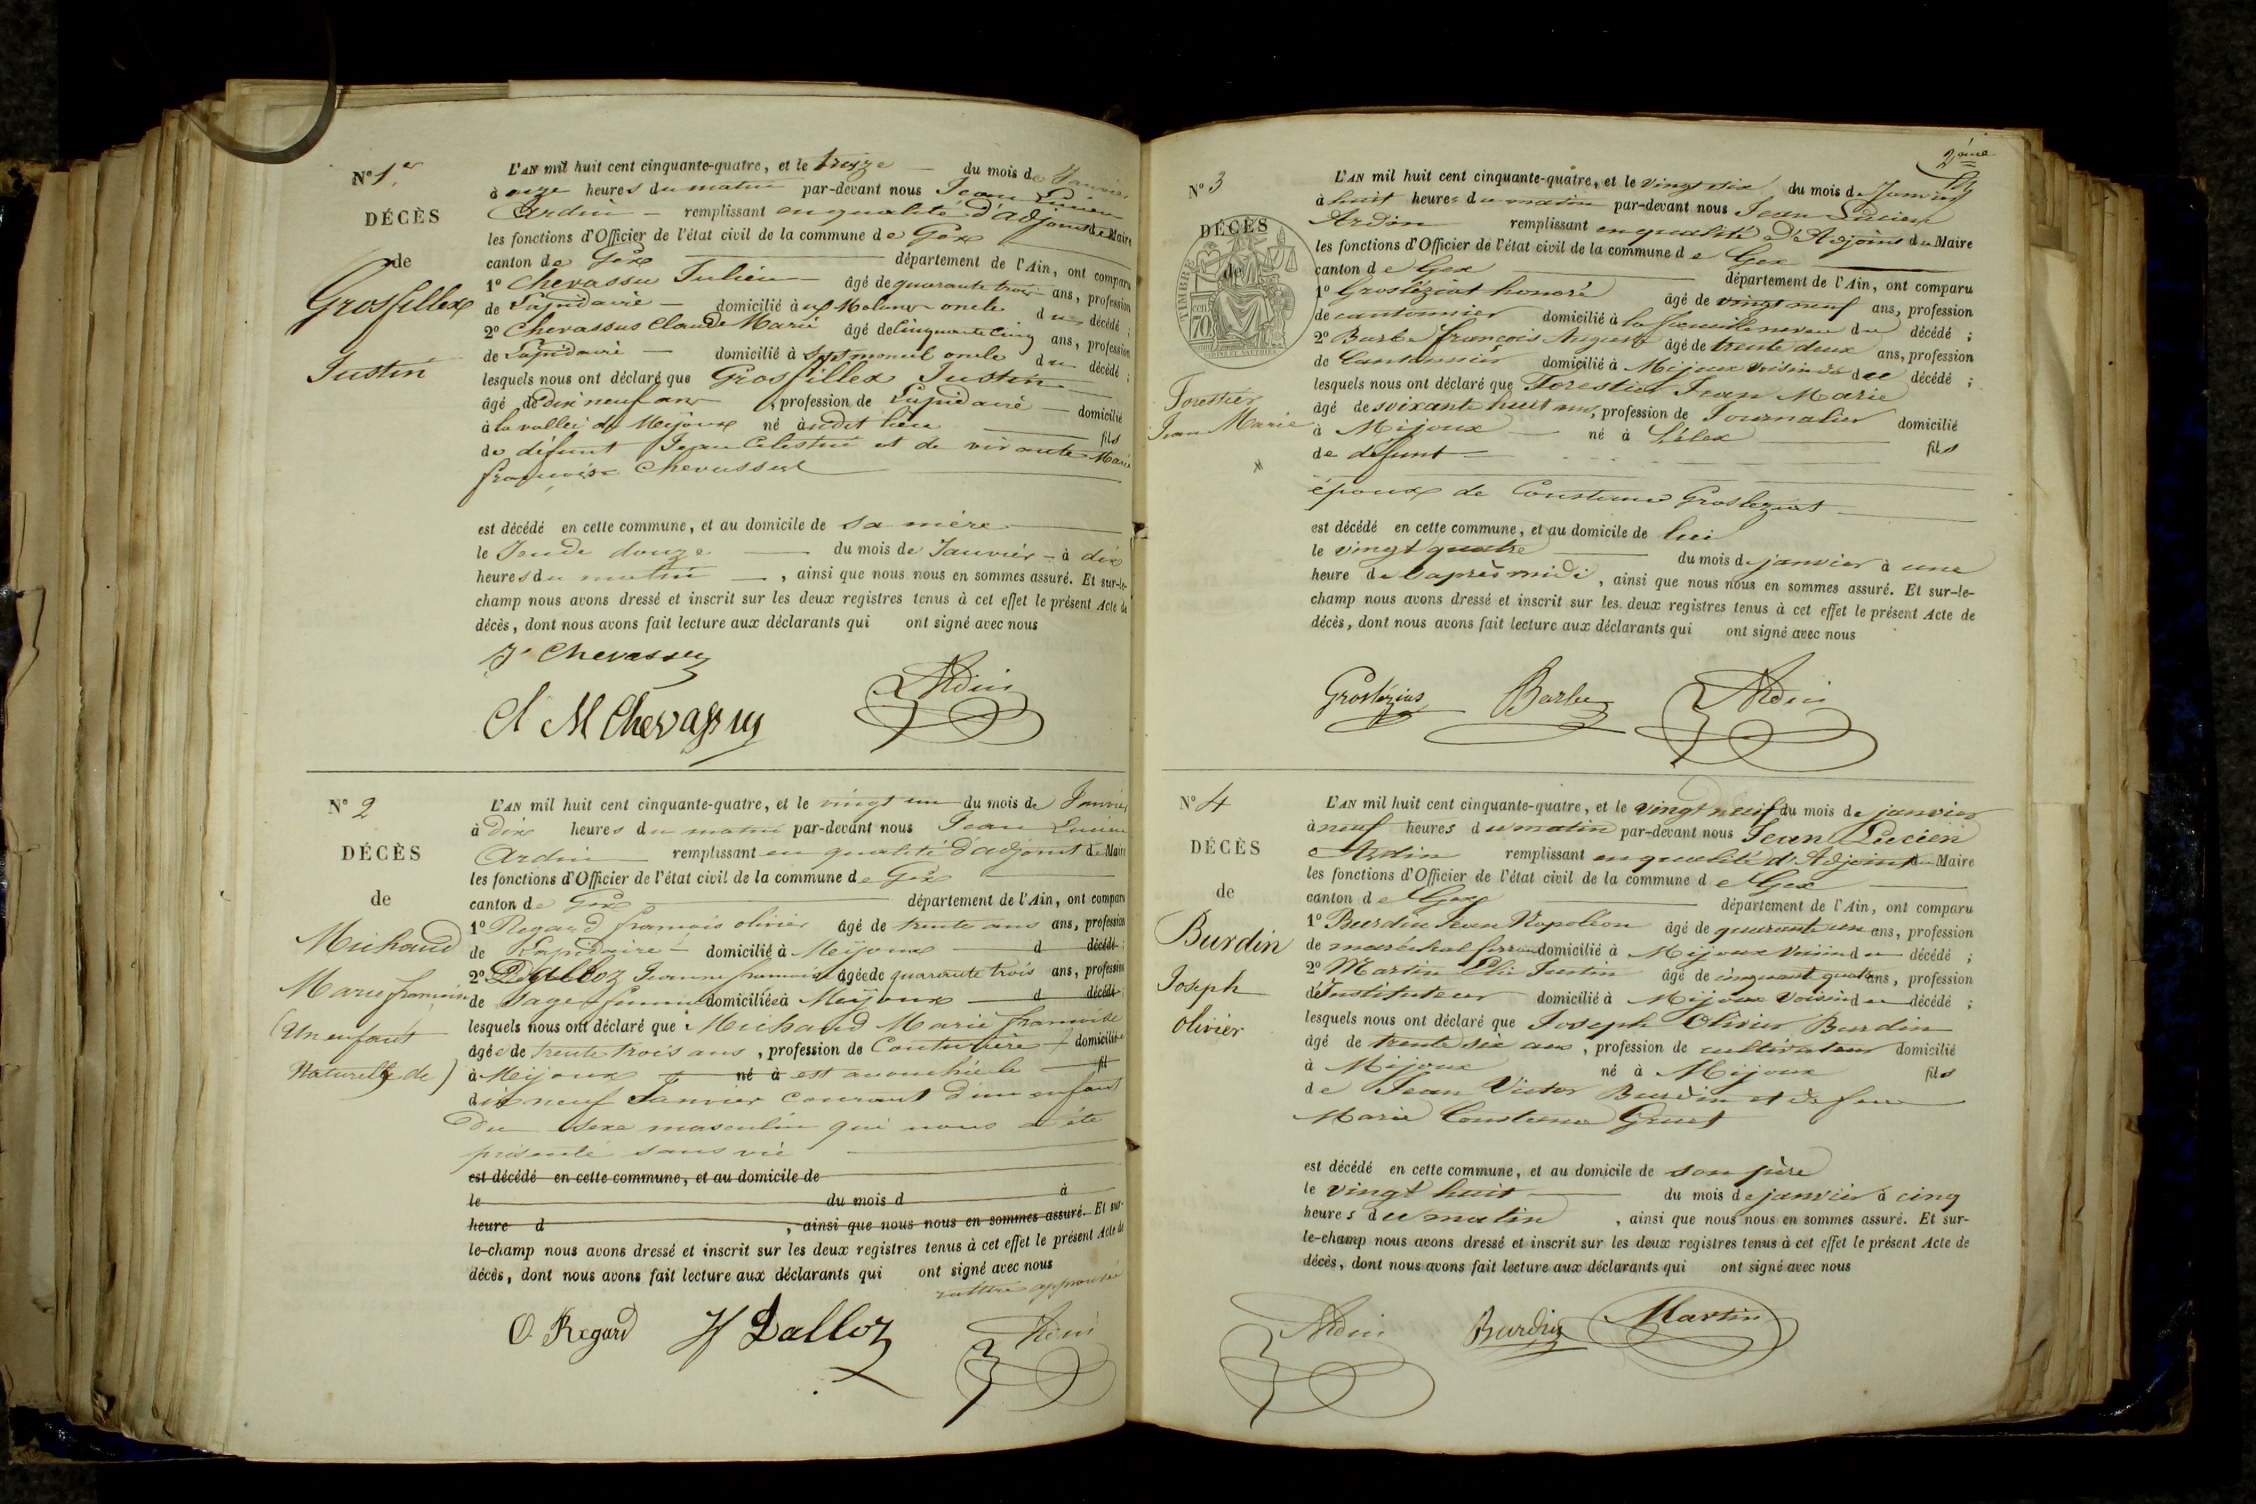 N° 1er
DÉCÈS
de
Grosfillex
Justin
L'AN mil huit cent cinquante-quatre, et le treize du mois de Janvier
à onze heures du matin par-devant nous Jean Lucien
Ardin remplissant en qualité d'adjoint de Maire
les fonctions d'Officier de l'état civil de la commune de Gex
canton de Gex département de l'Ain, ont comparu
1° Chevassu Julien âgé de quarante trois ans, profession
de Lapidaire domicilié à Molunes oncle du décédé ;
2° Chevassus Claude Marie âgé de Cinquante Cinq ans, profession
de Lapidaire domicilié à Septmoncel oncle du décédé ;
lesquels nous ont déclaré que Grosfillex Justin
âgé de dix neuf ans, profession de Lapidaire domicilié
à la vallée de Meijoux né audit lieu fils
de défunt Jean Célestin et de vivante Marie
françoise Chevassus
est décédé en cette commune, et au domicile de sa mère
le Jeudi douze du mois de Janvier à dix
heures du matin, ainsi que nous nous en sommes assuré. Et sur-le-
champ nous avons dressé et inscrit sur les deux registres tenus à cet effet le présent Acte de
décès, dont nous avons fait lecture aux déclarants qui ont signé avec nous
Jn Chevassu
Ardin
Cl M Chevassus
N° 2
DÉCÈS
de
Michaud
Marie françoise
(Un enfant
Naturel de)
L'AN mil huit cent cinquante-quatre, et le vingt un du mois de Janvier
à dix heures du matin par-devant nous Jean Lucien
Ardin remplissant en qualité d'adjoint de Maire
les fonctions d'Officier de l'état civil de la commune de Gex
canton de Gex département de l'Ain, ont comparu
1° Regard françois olivier âgé de trente ans ans, profession
de Lapidaire domicilié à Meijoux d décédé ;
2° Dalloz Jeanne françoise âgée de quarante trois ans, profession
de Sage femme domiciliée à Meijoux d décédé
lesquels nous ont déclaré que Michaud Marie françoise
âgée de trente trois ans, profession de Couturière domiciliée
à Meijoux né à est accouchée le fil
dix neuf Janvier courant d'un enfant
Du sexe masculin qui nous a été
présenté sans vie
est décédé en cette commune, et au domicile de
le du mois d à
heure d , ainsi que nous nous en sommes assuré. Et sur-
le-champ nous avons dressé et inscrit sur les deux registres tenus à cet effet le présent Acte de
décès, dont nous avons fait lecture aux déclarants qui ont signé avec nous
rature approuvée
O. Regard Jf Dalloz Ardin
2ème
N° 3
DÉCÈS
de
TIMBRE
cen
70
Forestier
Jean Marie
L'AN mil huit cent cinquante-quatre, et le vingt six du mois de Janvier
à huit heures du matin par-devant nous Jean Lucien
Ardin remplissant en qualité d'Adjoint du Maire
les fonctions d'Officier de l'état civil de la commune de Gex
canton de Gex département de l'Ain, ont comparu
1° Grosléziat honoré âgé de vingt neuf ans, profession
de cantonnier domicilié à la faucille neveu du décédé ;
2° Barbe françois Auguste âgé de trente deux ans, profession
de Cantonnier domicilié à Mijoux voisin du décédé ;
lesquels nous ont déclaré que Forestier Jean Marie
âgé de soixante huit ans, profession de Journalier domicilié
à Mijoux né à Lélex fils
de défunt
époux de Constance Grosleziat
est décédé en cette commune, et au domicile de lui
le vingt quatre du mois de janvier à une
heure de l'après midi, ainsi que nous nous en sommes assuré. Et sur-le-
champ nous avons dressé et inscrit sur les deux registres tenus à cet effet le présent Acte de
décès, dont nous avons fait lecture aux déclarants qui ont signé avec nous
Groslézias Barbe Ardin
N° 4
DÉCÈS
de
Burdin
Joseph
olivier
L'AN mil huit cent cinquante-quatre, et le vingt neuf du mois de janvier
à neuf heures du matin par-devant nous Jean Lucien
Ardin remplissant en qualité d'Adjoint du Maire
les fonctions d'Officier de l'état civil de la commune de Gex
canton de Gex département de l'Ain, ont comparu
1° Burdin Jean Napoléon âgé de quarante un ans, profession
de maréchal ferran domicilié à Mijoux Voisin du décédé ;
2° Martin Elie Justin âgé de cinquante quatre ans, profession
d'Instituteur domicilié à Mijoux Voisin du décédé ;
lesquels nous ont déclaré que Joseph Olivier Burdin
âgé de trente six ans, profession de cultivateur domicilié
à Mijoux né à Mijoux fils
de Jean Victor Burdin et de feue
Marie Constance Gruet
est décédé en cette commune, et au domicile de son père
le vingt huit du mois de janvier à cinq
heures du matin, ainsi que nous nous en sommes assuré. Et sur-
le-champ nous avons dressé et inscrit sur les deux registres tenus à cet effet le présent Acte de
décès, dont nous avons fait lecture aux déclarants qui ont signé avec nous
Ardin Burdin Martin